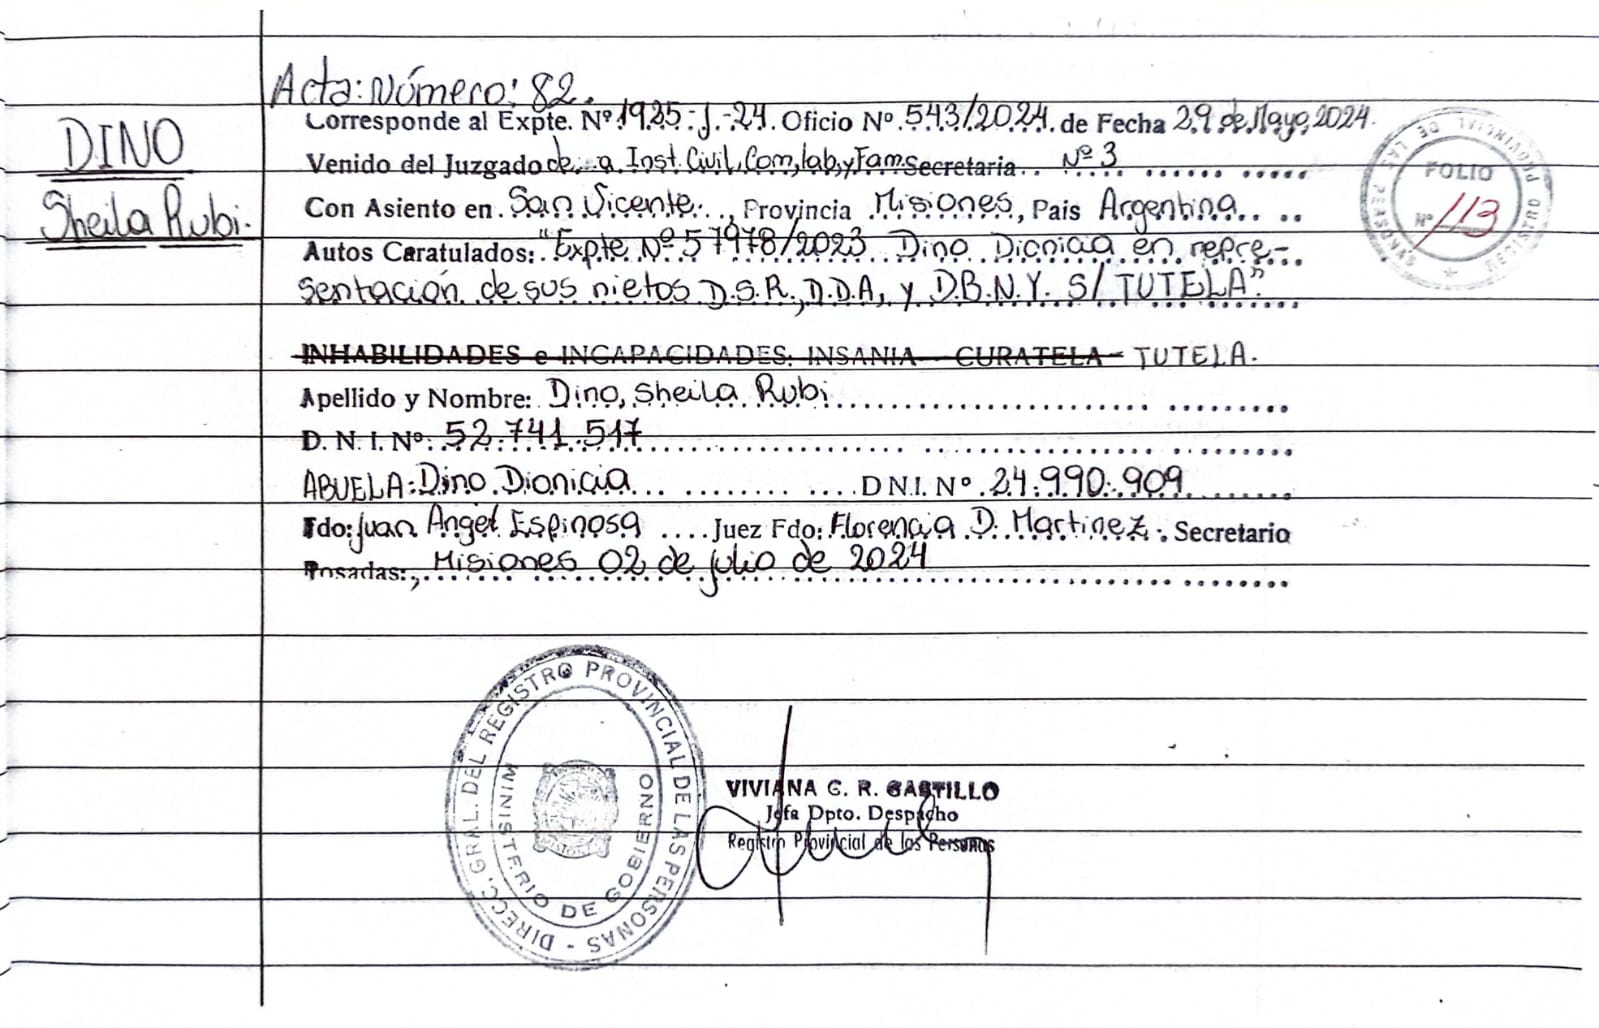 Acta: Número: 82.
DINO
Sheila Rubi.
Corresponde al Expte. Nº 1925-J-24. Oficio Nº 543/2024. de Fecha 29 de Mayo 2024.
Venido del Juzgado de a Inst. Civil, Com, lab, y Fam. Secretaria Nº 3
Con Asiento en San Vicente, Provincia Misiones, Pais Argentina
Autos Caratulados: "Expte Nº 57978/2023 Dino Dionicia en repre-
sentación de sus nietos D.S.R., D.D.A, y D.B.N.Y. S/ TUTELA"
INHABILIDADES e INCAPACIDADES: INSANIA - CURATELA - TUTELA.
Apellido y Nombre: Dino, Sheila Rubi
D. N. I. Nº 52.741.517
ABUELA: Dino Dionicia D N.I. Nº 24.990.909
Fdo: Juan Angel Espinosa Juez Fdo: Florencia D. Martinez. Secretario
Posadas:, Misiones 02 de julio de 2024
REGISTRO PROVINCIAL DE LAS PERSONAS
FOLIO
Nº 113
DIRECC. GRAL. DEL REGISTRO PROVINCIAL DE LAS PERSONAS -
MINISTERIO DE GOBIERNO
VIVIANA G. R. CASTILLO
Jefa Dpto. Despacho
Registro Provincial de las Personas